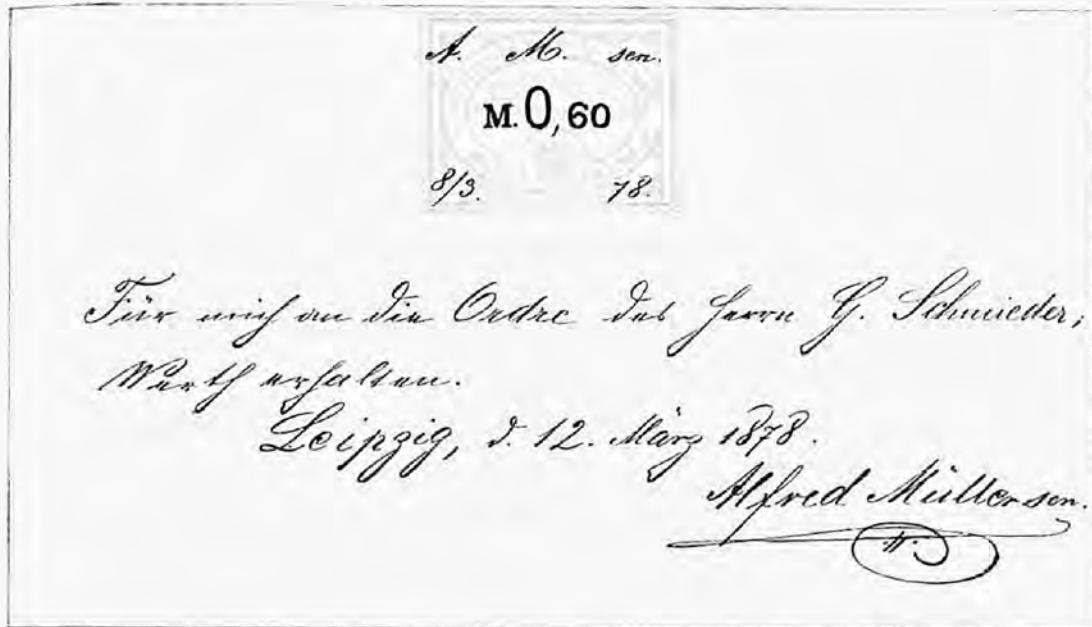 A. M. sen.
M. 0,60
8/3. 78.
Für mich an die Ordre des Herrn H. Schmieder,
Werth erhalten.
Leipzig, d. 12. März 1878.
Alfred Müller sen.